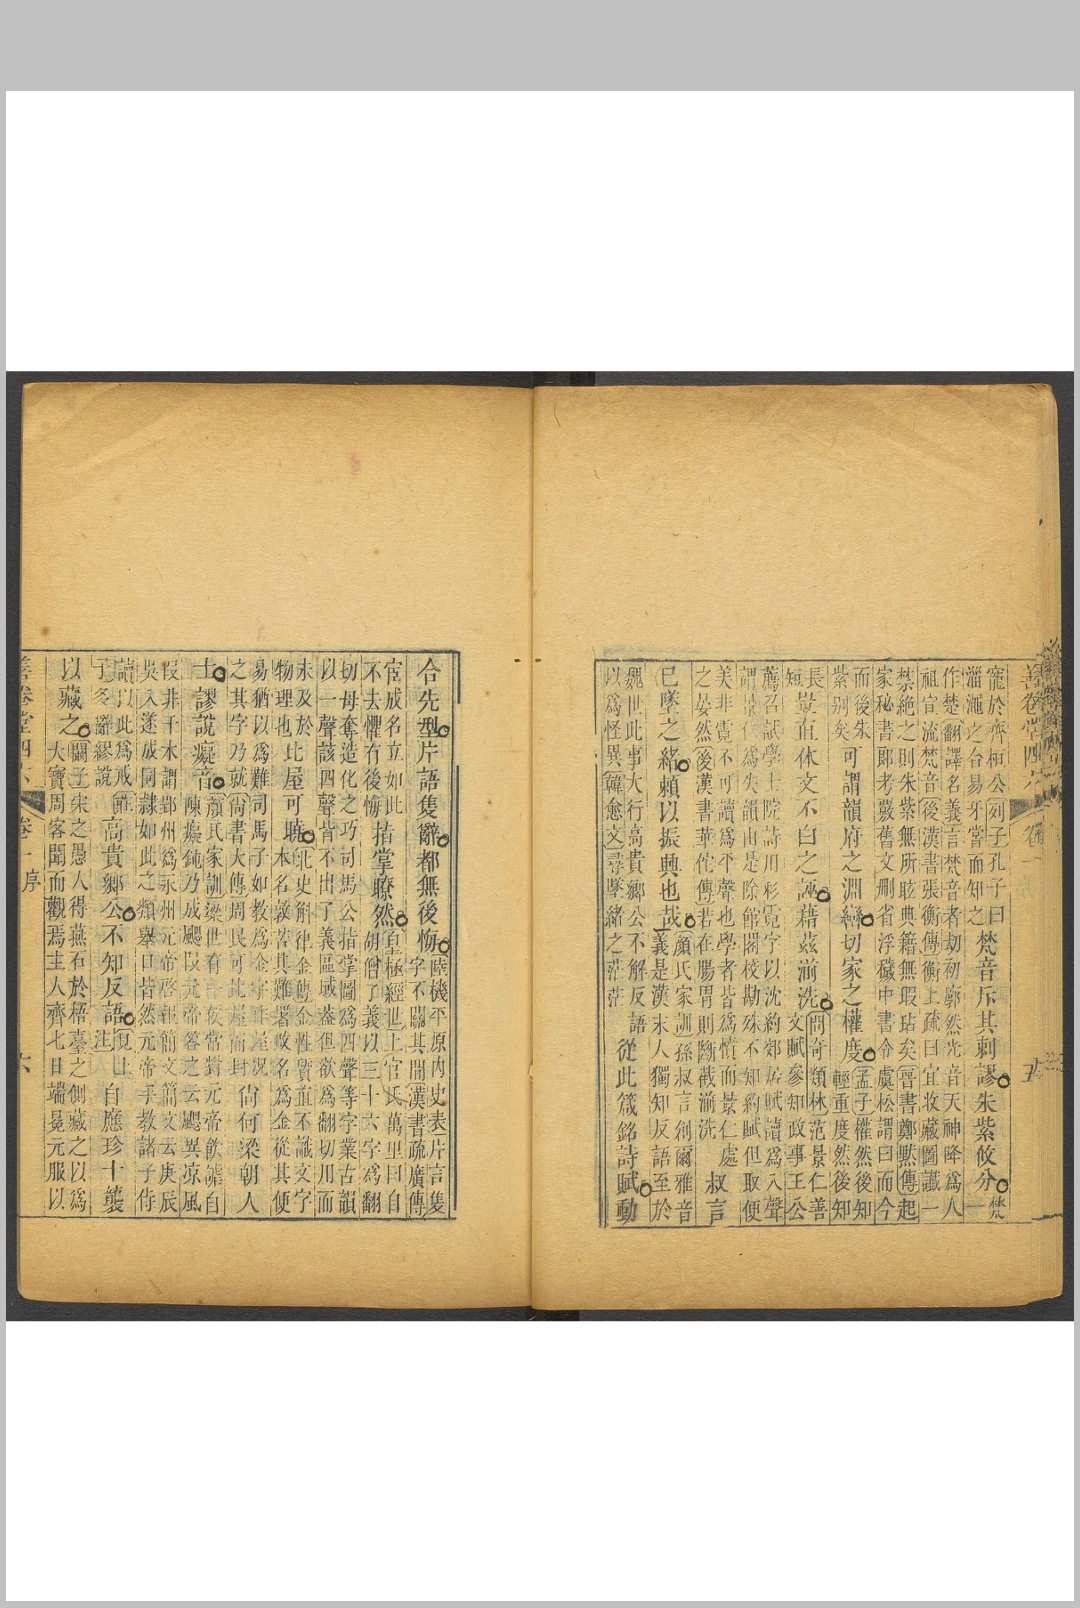 善卷堂四六
卷一
寵於齊桓公列子孔子曰
淄澠之合易牙嘗而知之梵音斥其剌謬朱紫攸分梵一
作楚翻譯名義言梵音者劫初廓然光音天神降爲人
祖宣流梵音後漢書張衡傳衡上疏曰宜收藏圖讖一
禁絶之則朱紫無所眩典籍無瑕玷矣晉書鄭黙傳起
家秘書郎考覈舊文删省浮穢中書令虞松謂曰而今
而後朱
紫别矣可謂韻府之淵海切家之權度孟子權然後知
輕重度然後知
長短豈直休文不白之誣藉茲湔洗問奇類林范景仁善
文賦參知政事王公
薦召試學士院詩用彩霓字以沈約郊居賦讀爲入聲
謂景仁爲失韻由是除館閣校勘殊不知約賦但取便
美非霓不可讀爲平聲也學者皆爲憤而景仁處
之晏然後漢書華佗傳若在腸胃則斷截湔洗叔言
已墜之緒賴以振興也哉顏氏家訓孫叔言創爾雅音
義是漢末人獨知反語至於
魏世此事大行高貴鄉公不解反語
以爲怪異韓愈文尋墜緒之茫茫從此箴銘詩賦動
合先型片語隻辭都無後悔陸機平原内史表片言隻
字不關其間漢書疏廣傳
宦成名立如此
不去懼有後悔指掌瞭然皇極經世上官氏萬里曰自
胡僧了義以三十六字爲翻
切母奪造化之巧司馬公指掌圖爲四聲等字業古韻
以一聲該四聲皆不出了義區域蓋但欲爲翻切用而
未及於
物理也比屋可曉北史斛律金傳金性質直不識文字
本名敦苦其難署改名爲金從其便
易猶以爲難司馬子如教爲金字作屋況
之其字乃就尚書大傳周民可比屋而封尙何梁朝人
士謬說癡音顏氏家訓梁世有一侯嘗對元帝飲謔自
陳癡鈍乃成颸段元帝答之云颸異凉風
叚非干木謂郢州爲永州元帝啓報簡文簡文云庚辰
吳入遂成司隷如此之類舉口皆然元帝手教諸子侍
讀以此爲戒高貴鄉公不知反語注見上自應珍十襲
以藏之闞子宋之愚人得燕石於梧臺之側藏之以爲
大寶周客聞而觀焉主人齊七日端冕元服以
善卷堂四六
卷一 序
六